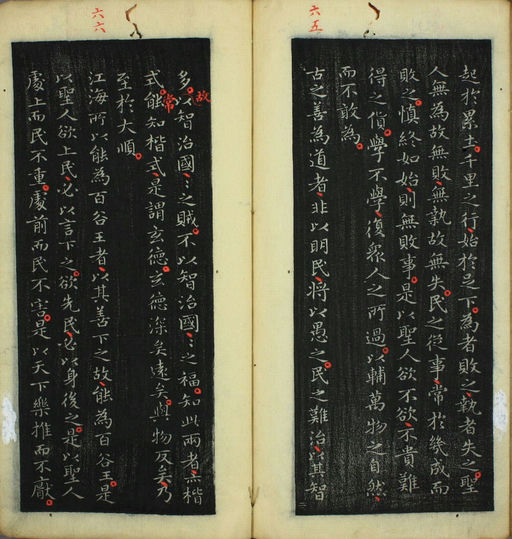 六五
起於累土千里之行始於足下為者敗之執者失之聖
人無為故無敗無執故無失民之從事常於幾成而
敗之慎終如始則無敗事是以聖人欲不欲不貴難
得之貨學不學復眾人之所過以輔萬物之自然
而不敢為
古之善為道者非以明民將以愚之民之難治以其智
六六
多故以智治國〻之賊不以智治國〻之福知此兩者亦楷
式常能知楷式是謂玄德玄德深矣遠矣與物反矣乃
至於大順
江海所以能為百谷王者以其善下之故能為百谷王是
以聖人欲上民必以言下之欲先民必以身後之是以聖人
處上而民不重處前而民不害是以天下樂推而不厭